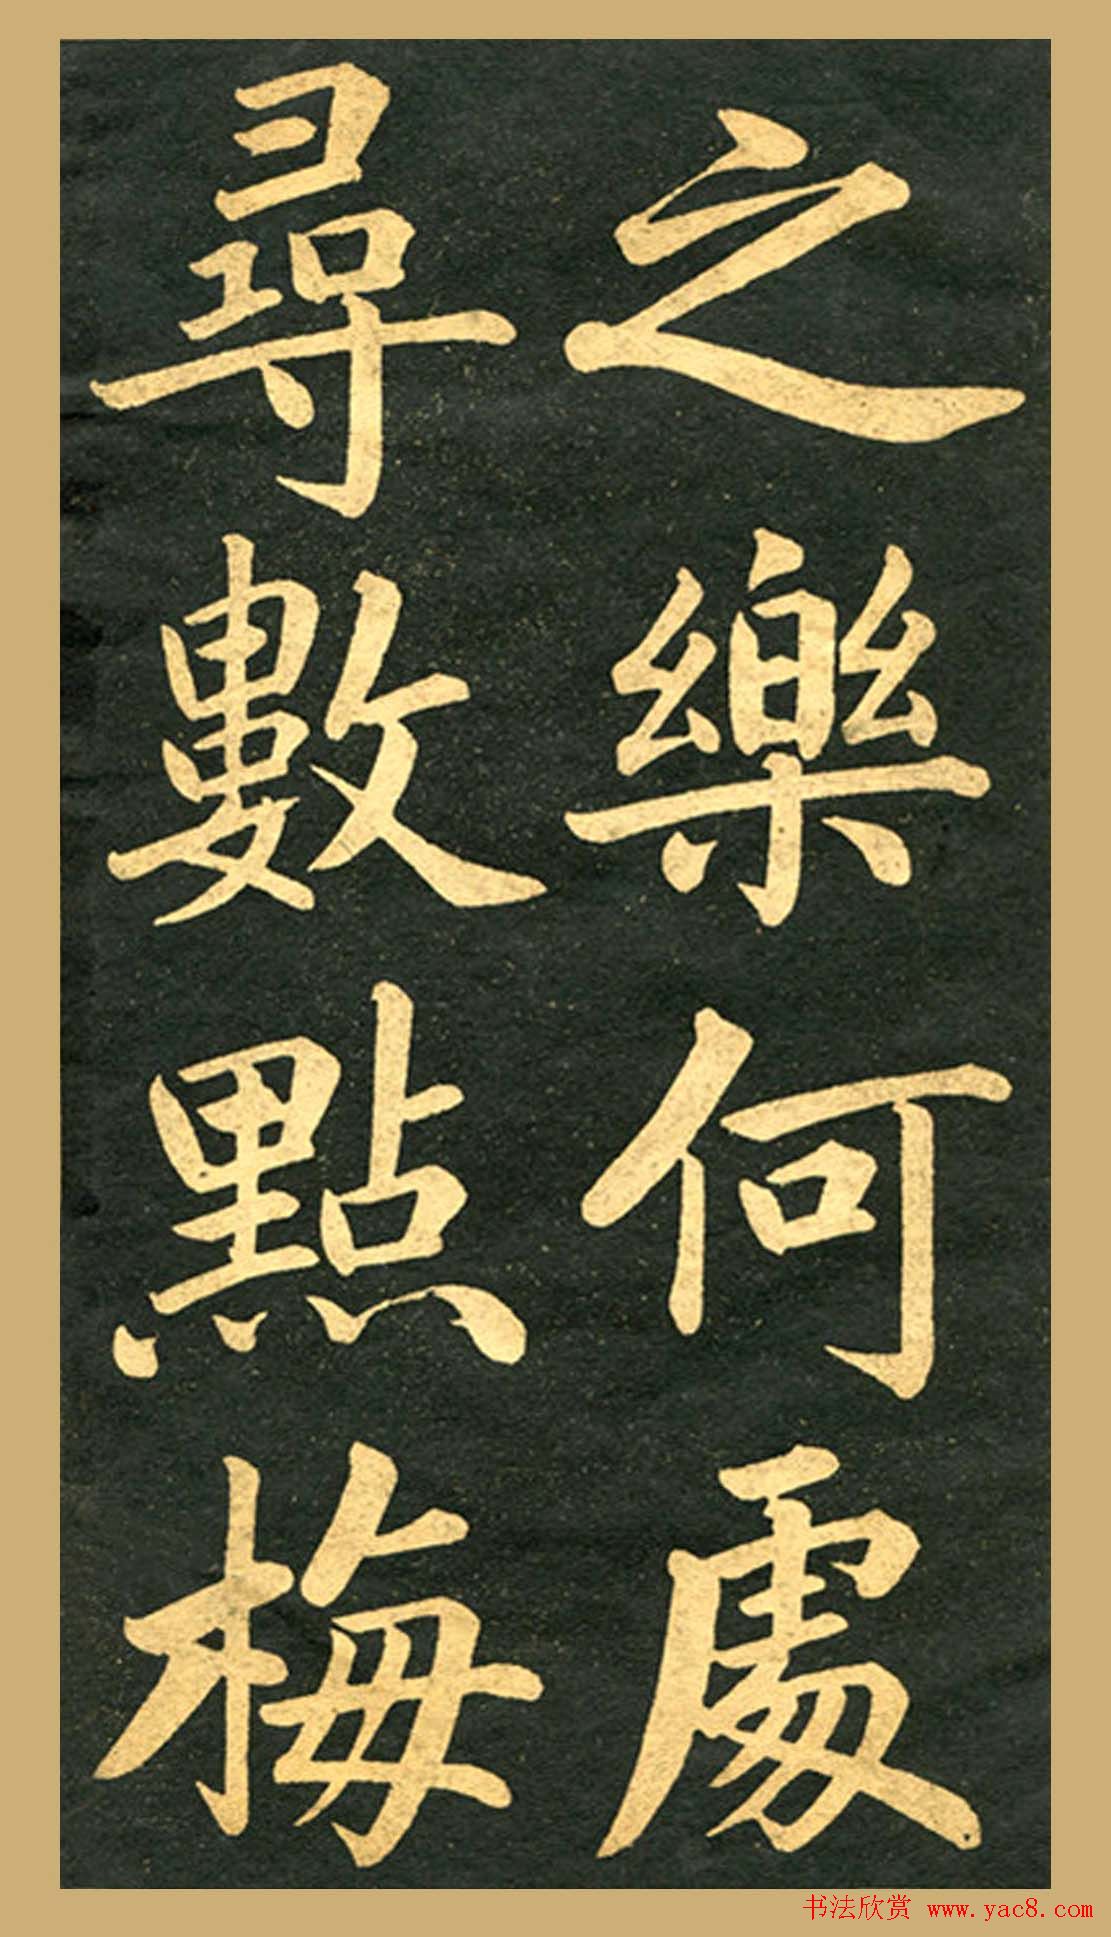 之樂何處
尋數點梅
书法欣赏 www.yac8.com